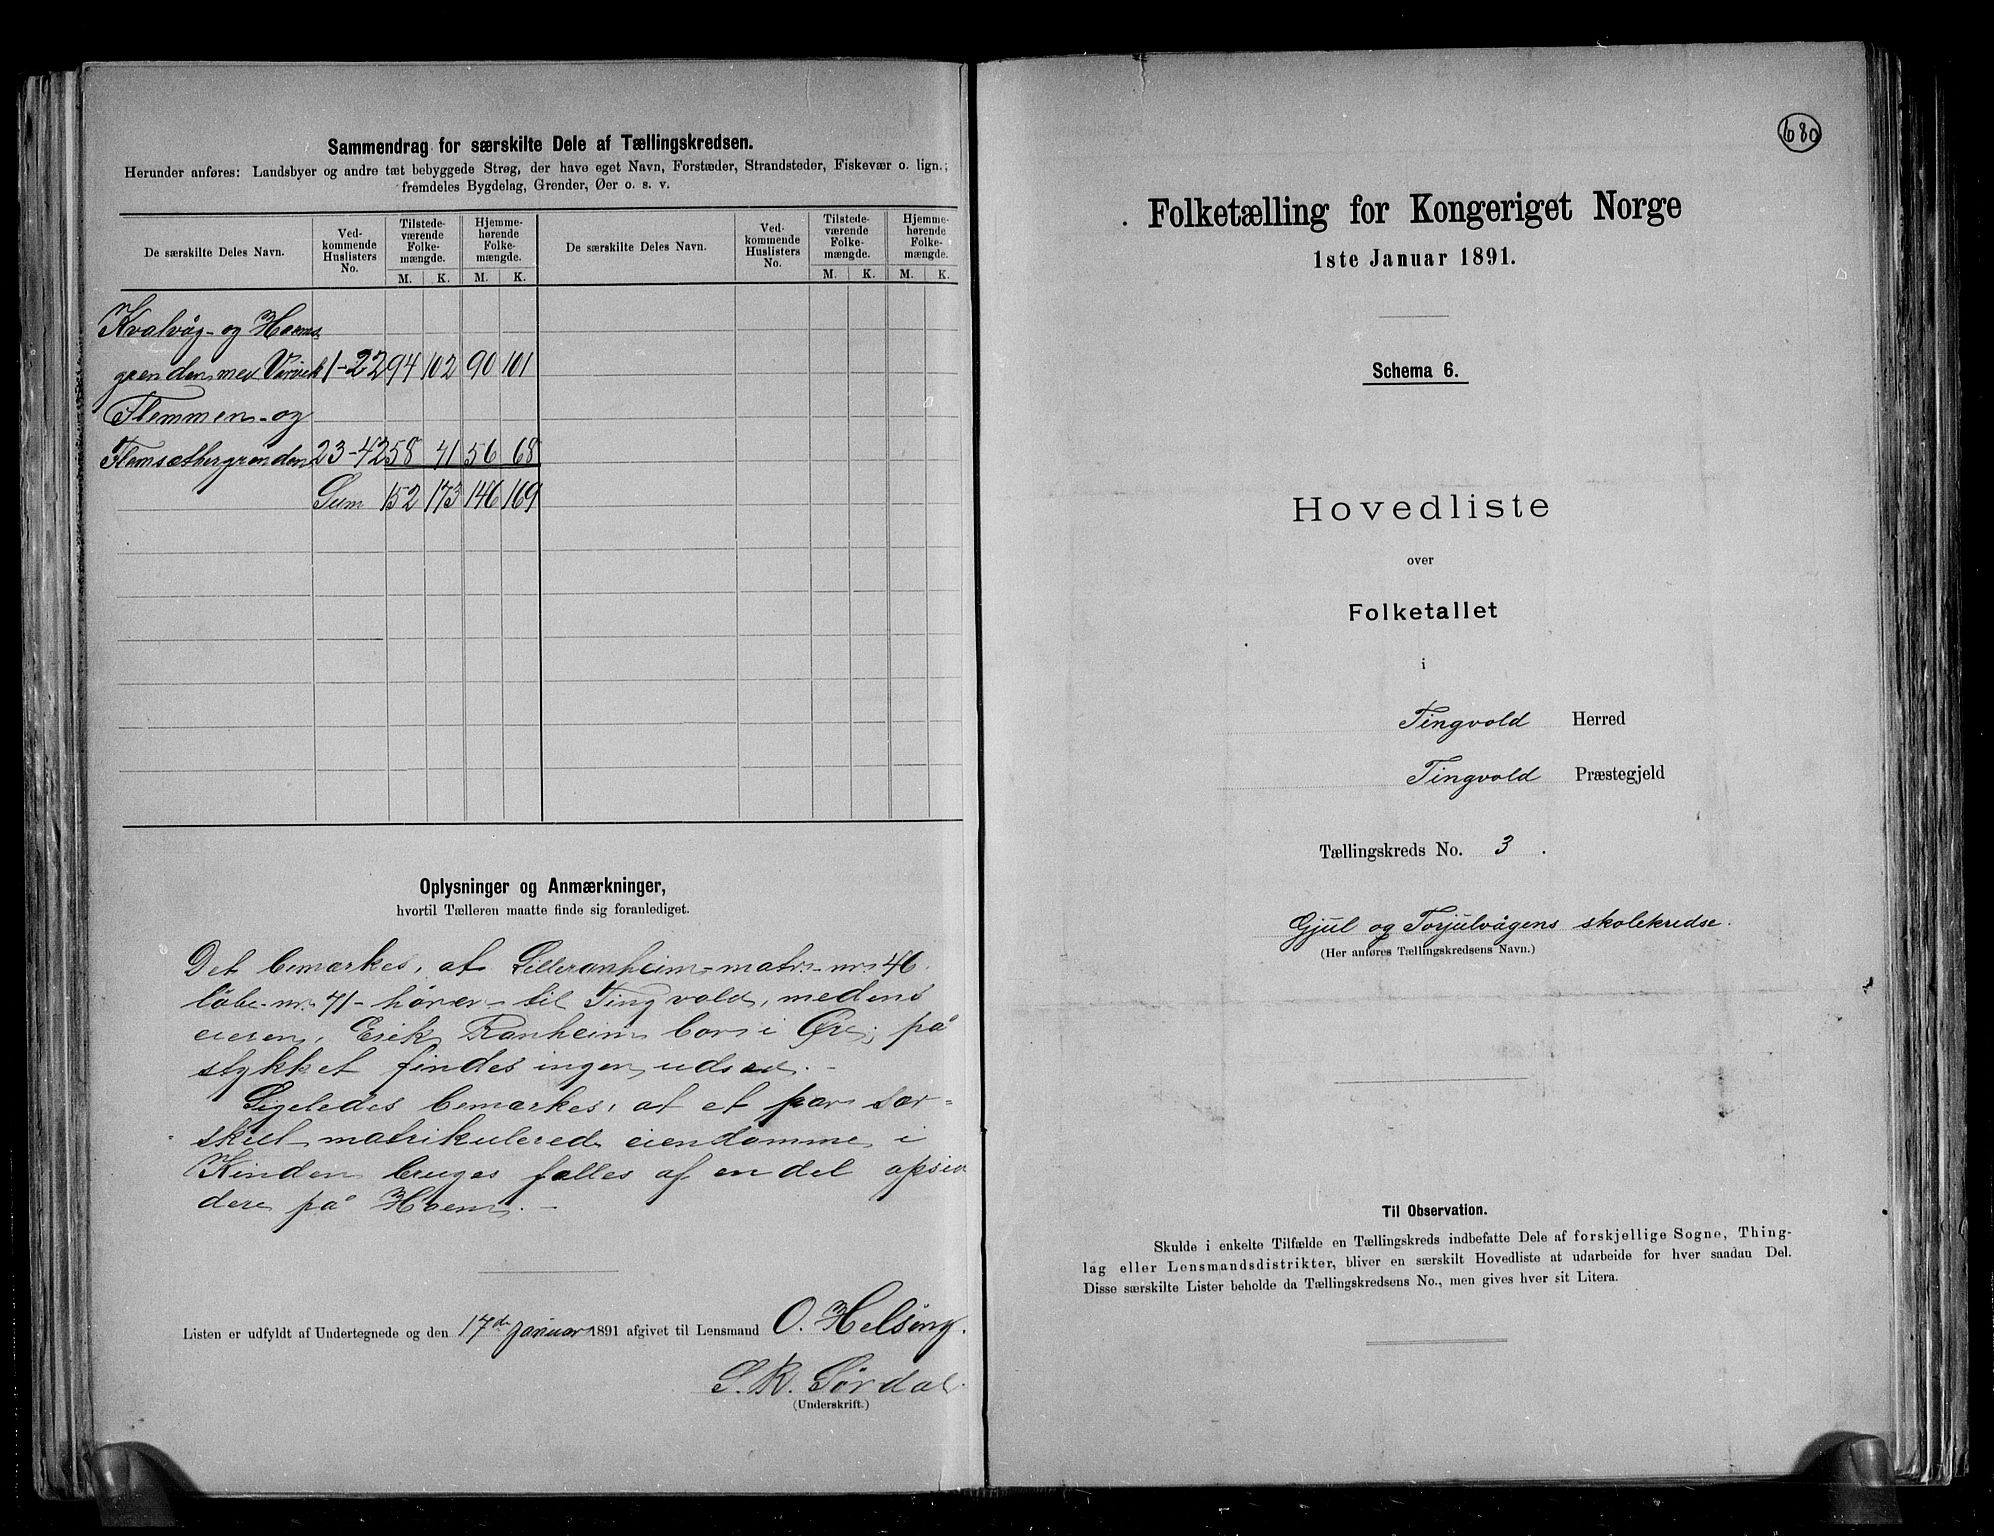 Sammendrag for særskilte Dele af Tællingskredsen.
Herunder anføres: Landsbyer og andre tæt bebyggede Strøg, der have eget Navn, Forstæder, Strandsteder, Fiskevær o. lign.;
fremdeles Bygdelag, Grender, Øer o. s. v.
De særskilte Deles Navn.
Ved-
kommende
Huslisters
No.
Tilstede-
værende
Folke-
mængde.
M. K.
Hjemme-
hørende
Folke-
mængde.
M. K.
De særskilte Deles Navn.
Ved-
kommende
Huslisters
No.
Tilstede-
værende
Folke-
mængde.
M. K.
Hjemme-
hørende
Folke-
mængde.
M. K.
Kvalvåg- og Hoems
grenden med Vårvik 1-22 94 102 90 101
Flemmen- og
Flemsæthergrenden 23-42 58 71 56 68
Sum 152 173 146 169
Oplysninger og Anmærkninger,
hvortil Tælleren maatte finde sig foranlediget.
Det bemærkes, at Lilleranheim - matr. - nr. 46
løbe - nr. 71 - hører - til Tingvold, medens
eieren, Erik Ranheim bor i Øre; på
stykket findes ingen udsæd. -
Ligeledes bemærkes, at et par sær-
skilt matrikulerede eiendomme i
Kinden bruges fælles af en del opsid
dere på Hoem. -
Listen er udfyldt af Undertegnede og den 17de januar 1891 afgivet til Lensmand O. Helsing.
S. R. Sørdal
(Underskrift.)
680
Folketælling for Kongeriget Norge
1ste Januar 1891.
Schema 6.
Hovedliste
over
Folketallet
i
Tingvold Herred
Tingvold Præstegjeld
Tællingskreds No. 3.
Gjul og Torjulvågens skolekredse.
(Her anføres Tællingskredsens Navn.)
Til Observation.
Skulde i enkelte Tilfælde en Tællingskreds indbefatte Dele af forskjellige Sogne, Thing-
lag eller Lensmandsdistrikter, bliver en særskilt Hovedliste at udarbeide for hver saadan Del.
Disse særskilte Lister beholde da Tællingskredsens No., men gives hver sit Litera.